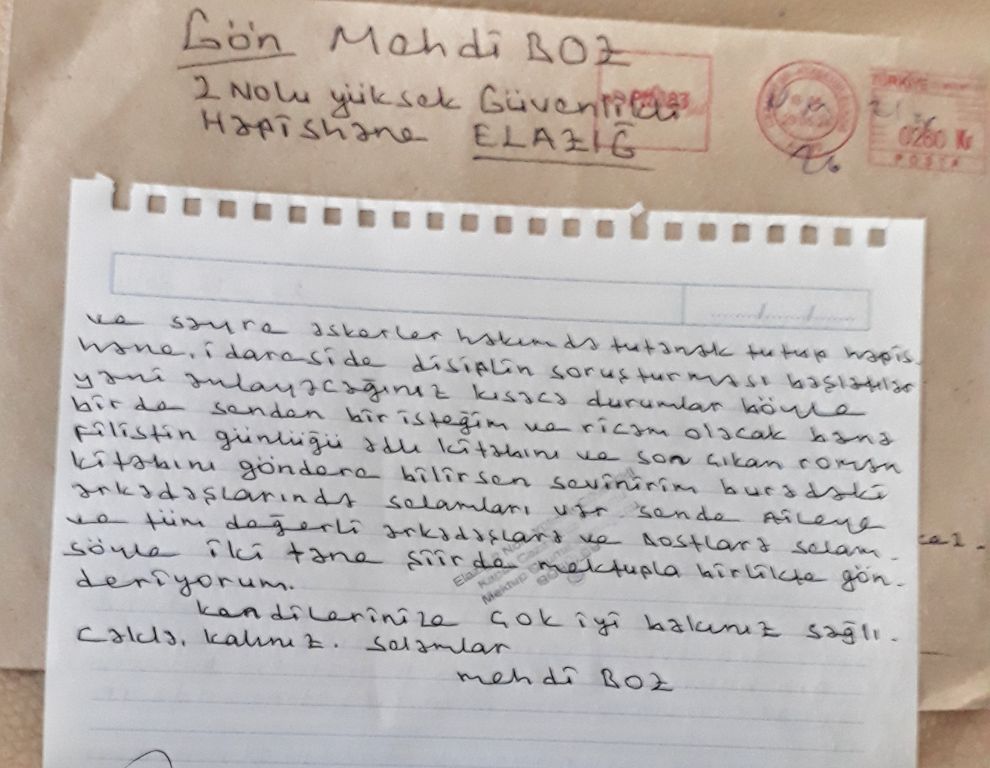 Gön Mehdi BOZ
2 Nolu yüksek Güvenlikli
Hapishane ELAZIĞ
TÜRKİYE
0260 Kr
POSTA
ve sayra askerler hakımda tutanak tutup hapis-
hane, idaraside disiplin soruşturması başlatılar
yani anlayacağınız kısaca durumlar böyle
birde senden bir isteğim ve ricam olacak bana
filistin günlüğü adlı kitabını ve son çıkan roman
kitabını göndere bilirsen sevinirim buradaki
arkadaşlarında selamları var sende Ailene
ve tüm değerli arkadaşlara ve Dostlara selam
söyle iki tane şiirde mektupla birlikte gön-
deriyorum.
kendilerinize çok iyi bakınız sağlı-
cakla, kalınız. selamlar
mehdi BOZ